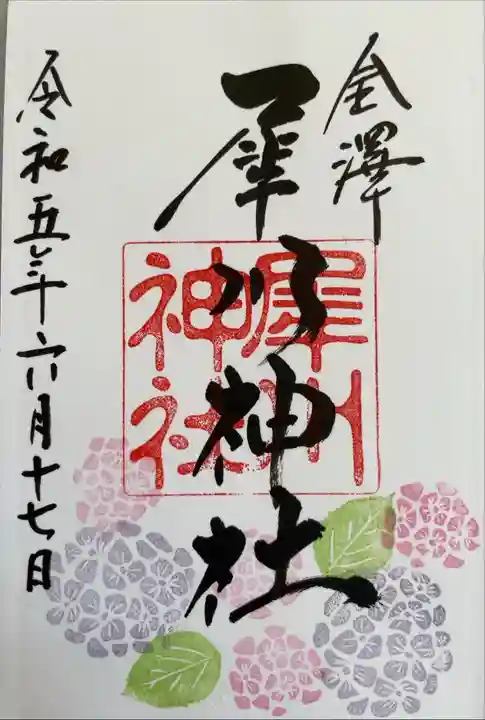 金澤
犀川神社
犀川
神社
令和五年六月十七日